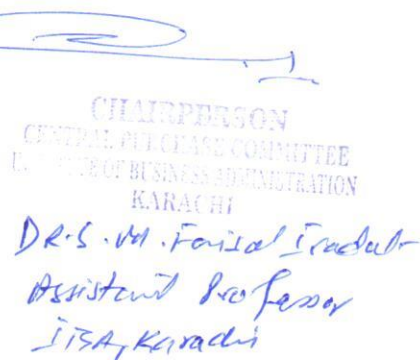 CHAIRPERSON
CENTRAL PURCHASE COMMITTEE
OF BUSINESS ADMINISTRATION
KARACHI
DR. S. M. Faisal Iradat
Assistant Professor
IBA, Karachi